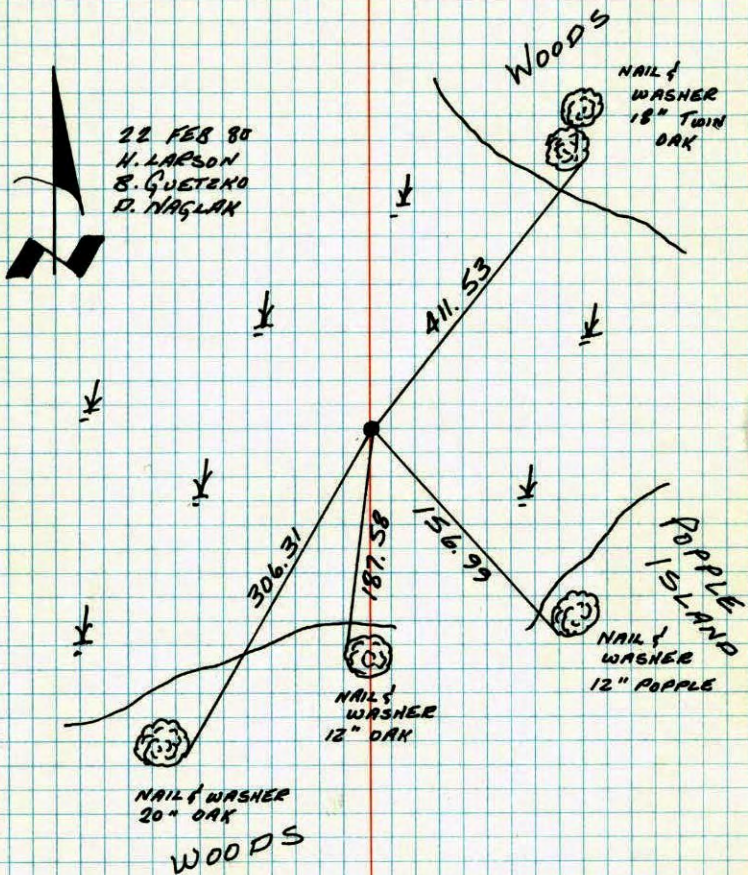 WOODS
NAIL &
WASHER
18" TWIN
OAK
22 FEB 80
H. LARSON
B. GUETZKO
D. NAGLAK
N
411.53
306.31
187.58
156.99
POPPLE
ISLAND
NAIL &
WASHER
12" POPPLE
NAIL &
WASHER
12" OAK
NAIL & WASHER
20" OAK
WOODS